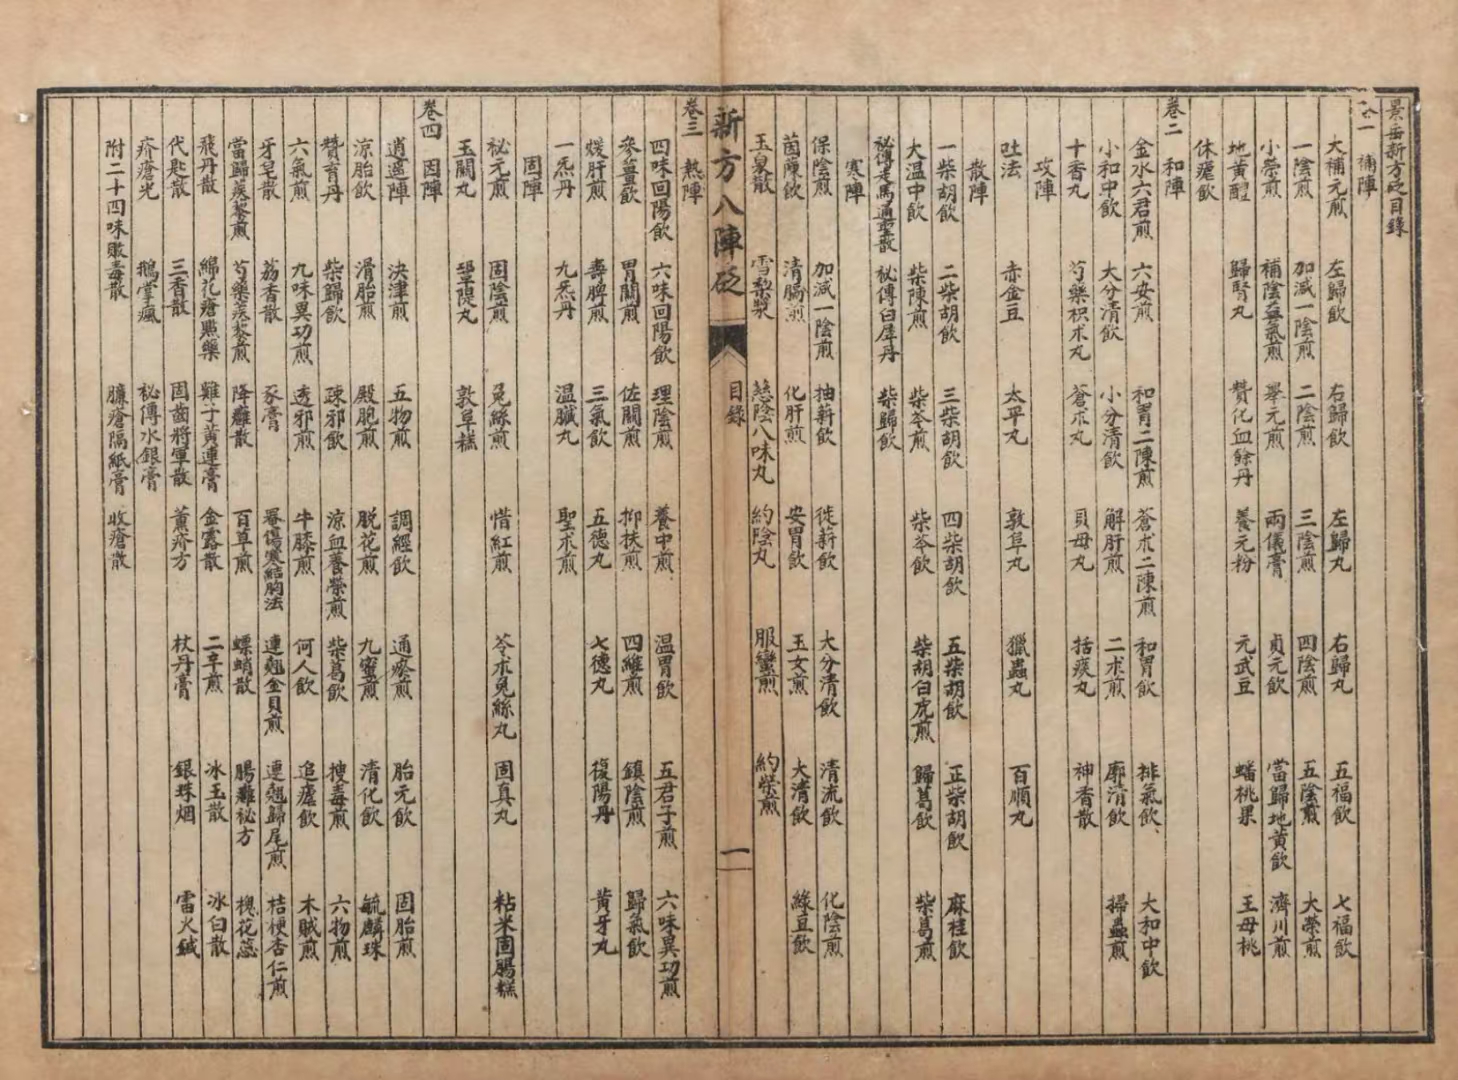 景岳新方砭目錄
卷一　補陣
大補元煎　左歸飲　右歸飲　左歸丸　右歸丸　五福飲　七福飲
一陰煎　加減一陰煎　二陰煎　三陰煎　四陰煎　五陰煎　大營煎
小營煎　補陰益氣煎　舉元煎　兩儀膏　貞元飲　當歸地黃飲　濟川煎
地黃醴　歸腎丸　贊化血餘丹　養元粉　元武豆　蟠桃果　王母桃
休瘧飲
卷二　和陣
金水六君煎　六安煎　和胃二陳煎　蒼朮二陳煎　和胃飲　排氣飲　大和中飲
小和中飲　大分清飲　小分清飲　解肝煎　二朮煎　廓清飲　掃蟲煎
十香丸　芍藥枳朮丸　蒼朮丸　貝母丸　括痰丸　神香散
攻陣
吐法　赤金豆　太平丸　敦阜丸　獵蟲丸　百順丸
散陣
一柴胡飲　二柴胡飲　三柴胡飲　四柴胡飲　五柴胡飲　正柴胡飲　麻桂飲
大溫中飲　柴陳煎　柴芩煎　柴苓飲　柴胡白虎煎　歸葛飲　柴葛煎
秘傳走馬通聖散　秘傳白犀丹　柴歸飲
寒陣
保陰煎　加減一陰煎　抽薪飲　徙薪飲　大分清飲　清流飲　化陰煎
茵蔯飲　清膈煎　化肝煎　安胃飲　玉女煎　大清飲　綠豆飲
玉泉散　雪梨漿　慈陰八味丸　約陰丸　服蠻煎　約營煎
新方八陣砭　目錄　一
卷三　熱陣
四味回陽飲　六味回陽飲　理陰煎　養中煎　溫胃飲　五君子煎　六味異功煎
參薑飲　胃關煎　佐關煎　抑扶煎　四維煎　鎮陰煎　歸氣飲
煖肝煎　壽脾煎　三氣飲　五德丸　七德丸　復陽丹　黃牙丸
一炁丹　九炁丹　溫臟丸　聖朮煎
固陣
秘元煎　固陰煎　兔絲煎　惜紅煎　苓朮兔絲丸　固真丸　粘米固腸糕
玉關丸　鞏隄丸　敦阜糕
卷四　因陣
逍遙陣　決津煎　五物煎　調經飲　通瘀煎　胎元飲　固胎煎
涼胎飲　滑胎煎　殿胞煎　脫花煎　九蜜煎　清化飲　毓麟珠
贊育丹　柴歸飲　疎邪飲　涼血養營煎　柴葛飲　搜毒煎　六物煎
六氣煎　九味異功煎　透邪煎　牛膝煎　何人飲　追瘧飲　木賊煎
牙皂散　荔香散　豕膏　罨傷寒結胸法　連翹金貝煎　連翹歸尾煎　桔梗杏仁煎
當歸蒺藜煎　芍藥蒺藜煎　降癰散　百草煎　螵蛸散　腸癰秘方　槐花蕊
飛丹散　綿花瘡點藥　雞子黃連膏　金露散　二辛煎　冰玉散　冰白散
代匙散　三香散　固齒將軍散　薰疥方　杖丹膏　銀珠烟　雷火鍼
疥瘡光　鵝掌瘋　秘傳水銀膏
附二十四味敗毒散　臁瘡隔紙膏　收瘡散